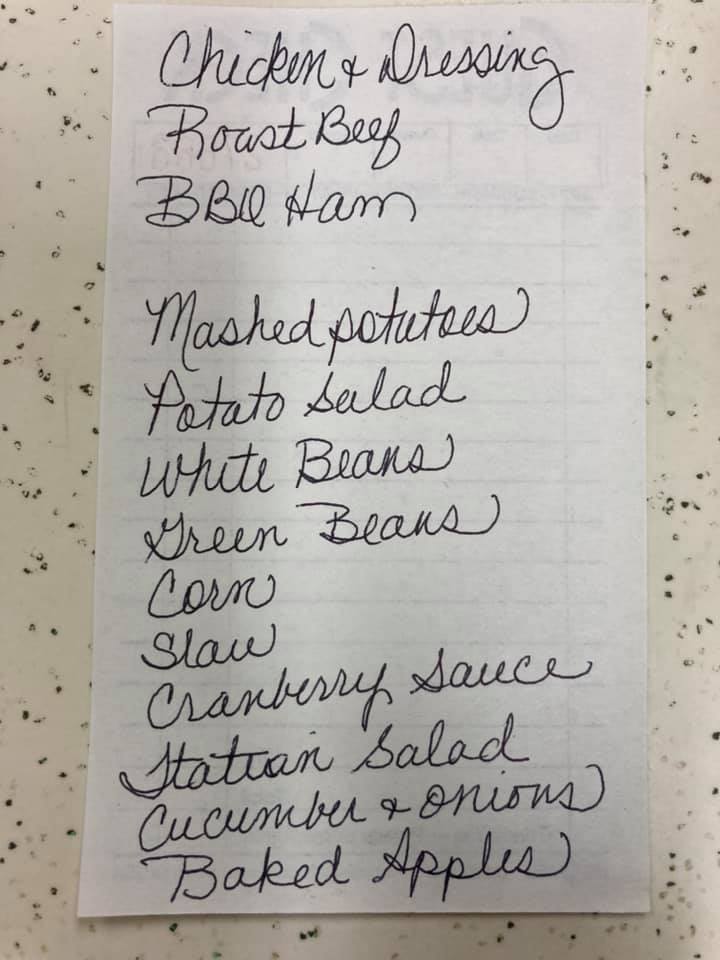 Chicken & Dressing
Roast Beef
BBQ Ham
Mashed potatoes
Potato Salad
White Beans
Green Beans
Corn
Slaw
Cranberry Sauce
Italian Salad
Cucumber & onions
Baked Apples